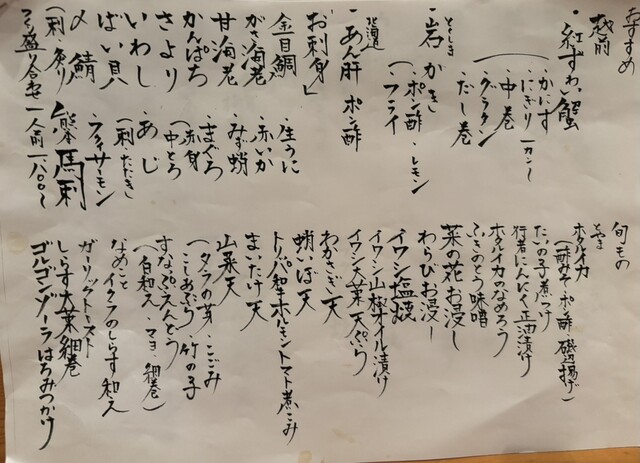 おすすめ
越前
・紅ずわい蟹
・かにす
・にぎり 一カン〜
・中巻
・グラタン
・だし巻
・岩がき
(・ポン酢・レモン
・フライ
北海道
・あん肝 ポン酢
「お刺身」
金目鯛 ・生うに
がさ海老 ・赤いか
甘海老 ・みず蛸
かんぱち ・まぐろ
さより (赤身 中とろ
いわし ・あじ
ばい貝 (刺・たたき
〆鯖 ・ラィサーモン
(刺・炙り 熊本馬刺
盛り合せ 一人前 一八〇〇〜
旬もの
ホタルイカ
(酢みそ・ポン酢・磯辺揚げ)
たいの子煮つけ
行者にんにく正油漬け
ホタルイカのなめろう
ふきのとう味噌
菜の花お浸し
わらびお浸し
イワシ塩焼
イワシ山椒オイル漬け
イワシ大葉天ぷら
わかさぎ天
蛸いぼ天
トリッパ和牛ホルモントマト煮こみ
まいたけ天
山菜天
(タラの芽・こごみ
こしあぶら・竹の子
すなっぷえんどう
(白和え・マヨ・網巻)
なめことイクラのしらす和え
ガーリックトースト
しらす大葉網巻
ゴルゴンゾーラはちみつかけ